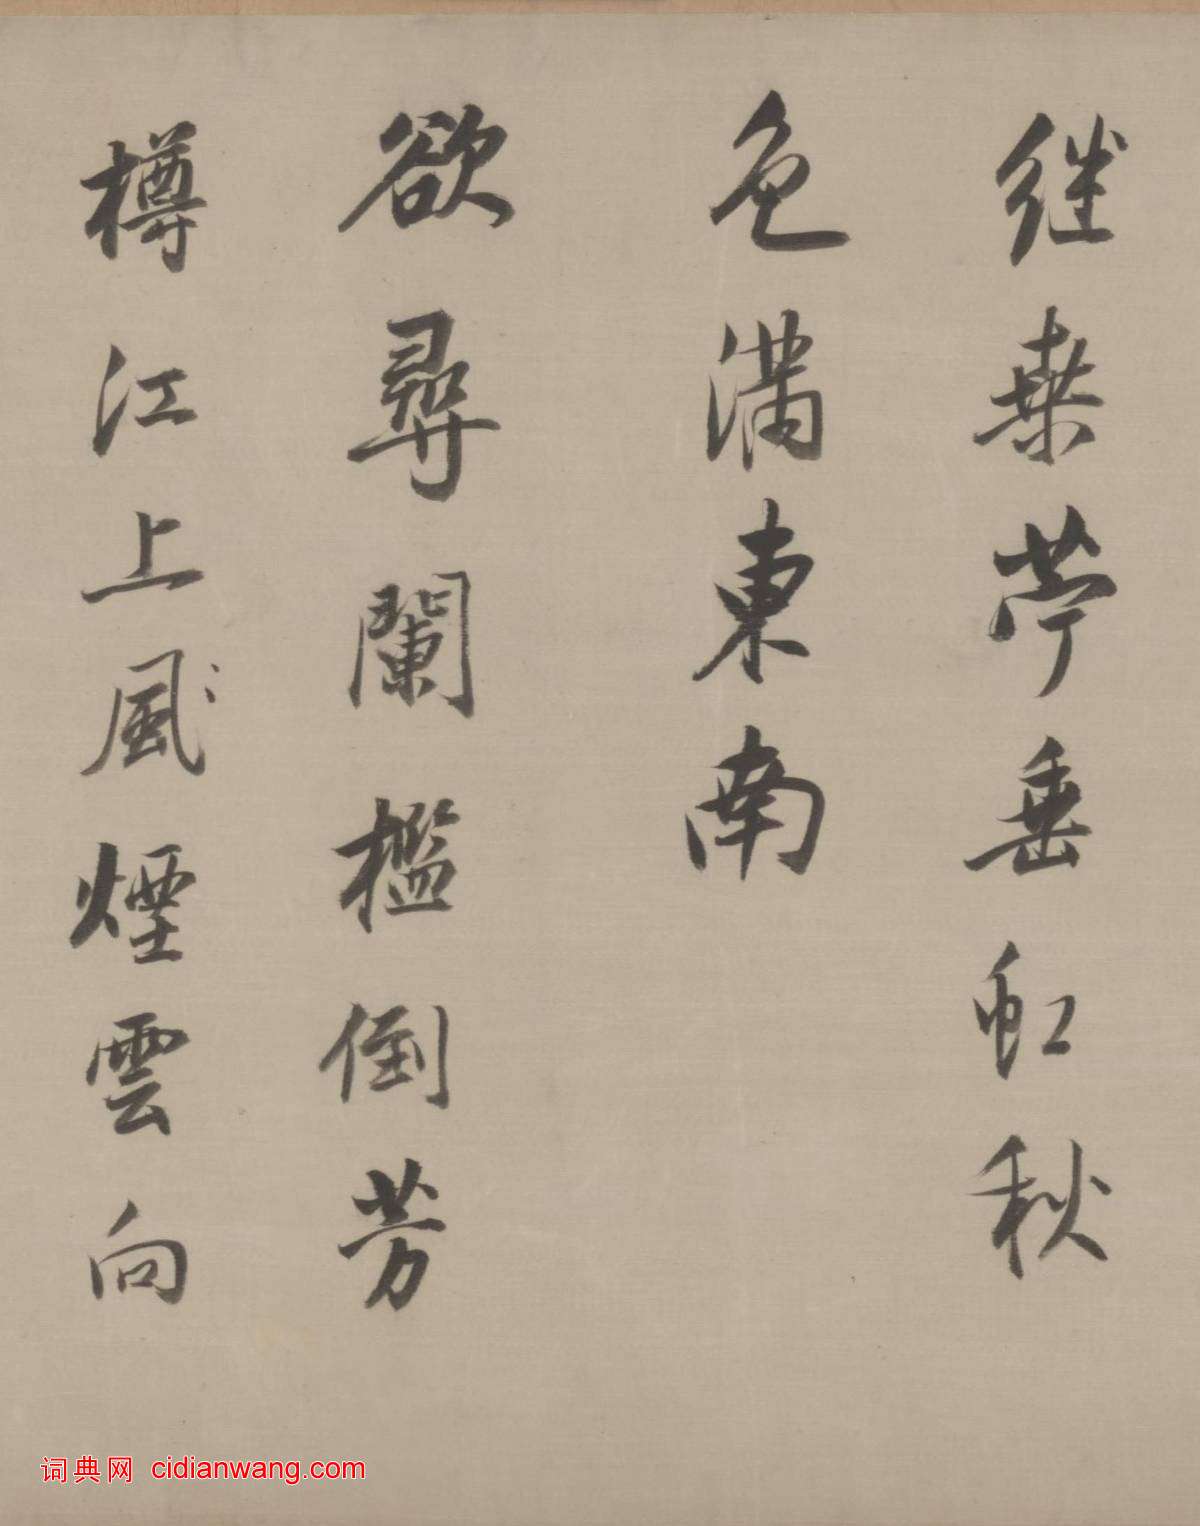 継桒苧垂虹秋
色滿東南
欲尋闌檻倒芳
樽江上風煙雲向
词典网 cidianwang.com